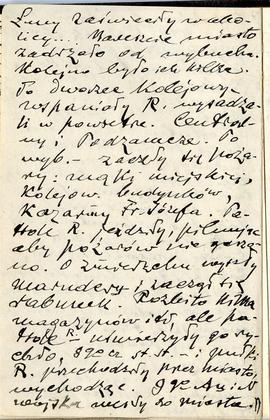 Łuny zaświeciły w oko-
licy... Nareszcie miasto
zadrżało od wybuchu.
Kolejno było ich kilka.
To Dworzec Kolejowy
wspaniały R. wysadza-
li w powietrze. Central-
ny i Podzamcze. Po
wyb. – zaczęły się poża-
ry: miejskiej,
Kolejow. budynków,
Kazarmy Fr. Józefa. Pa-
trole R. jeździły, pilnując
aby pożarów nie gaszo-
no. O zmierzchu wyszły
marudery i zaczął się
rabunek. Rozbito kilka
magazynów itd, ale pa-
trole – uśmierzyły go ry-
chło, 9go cz. st. st. – i pułki
R. przechodziły przez miasto,
wychodząc. 9go
wojska weszły do miasta.